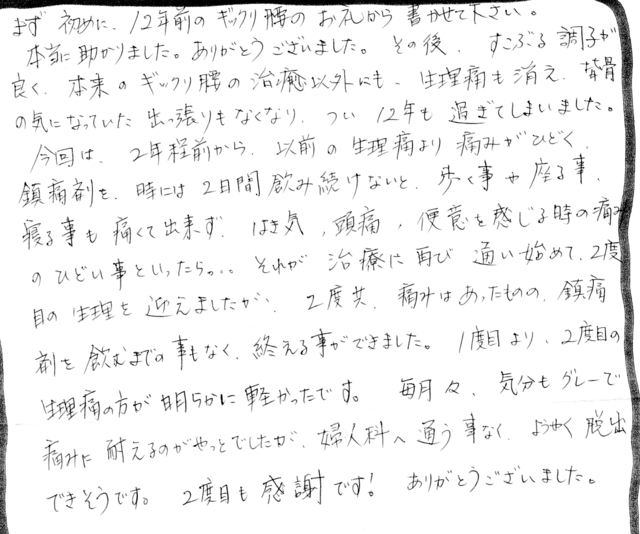 まず初めに、12年前のギックリ腰のお礼から書かせて下さい。
本当に助かりました。ありがとうございました。その後、すこぶる調子が
良く、本来のギックリ腰の治癒以外にも、生理痛も消え、背骨
の気になっていた出っ張りもなくなり、つい12年も過ぎてしまいました。
今回は、2年程前から、以前の生理痛より痛みがひどく、
鎮痛剤を、時には2日間飲み続けないと、歩く事や座る事、
寝る事も痛くて出来ず、はき気、頭痛、便意を感じる時の痛み
のひどい事といったら。。。それが治療に再び通い始めて、2度
目の生理を迎えましたが、2度共、痛みはあったものの、鎮痛
剤を飲むまでの事もなく、終える事ができました。1度目より、2度目の
生理痛の方が明らかに軽かったです。毎月々、気分もグレーで
痛みに耐えるのがやっとでしたが、婦人科へ通う事なく、ようやく脱出
できそうです。2度目も感謝です!ありがとうございました。